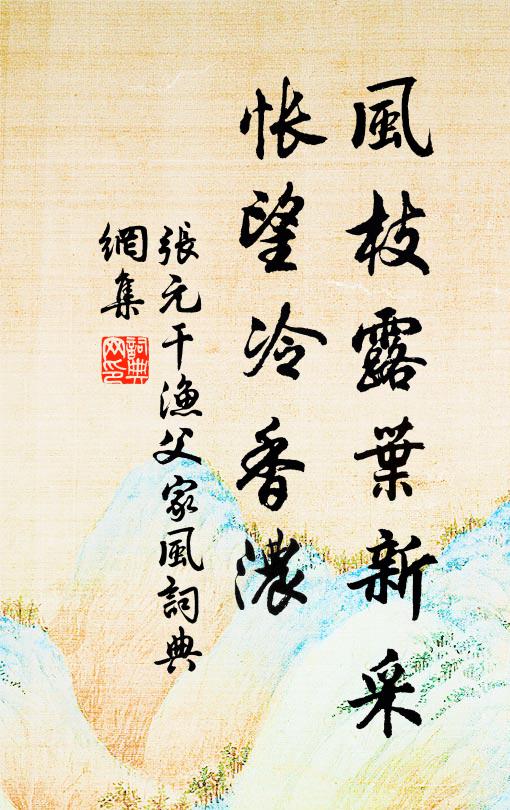 風枝露葉新采
悵望冷香濃
張元干漁父家風詞典
網集
詞典網印